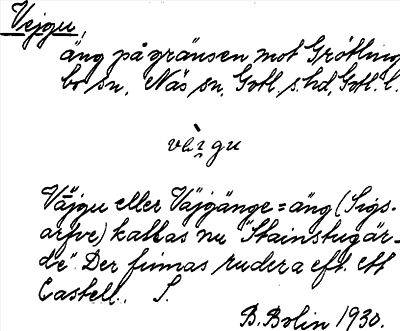 Vejgu,
äng på gränsen mot Grötling
bo sn, Näs sn, Gotl. s. hd, Gotl. l.
Väjgu eller Väjgänge = äng (Sigs-
arfve) kallas nu "Stainstugär-
de". Der finnas rudera eft. ett
Castell. S.
B. Bolin 1930.